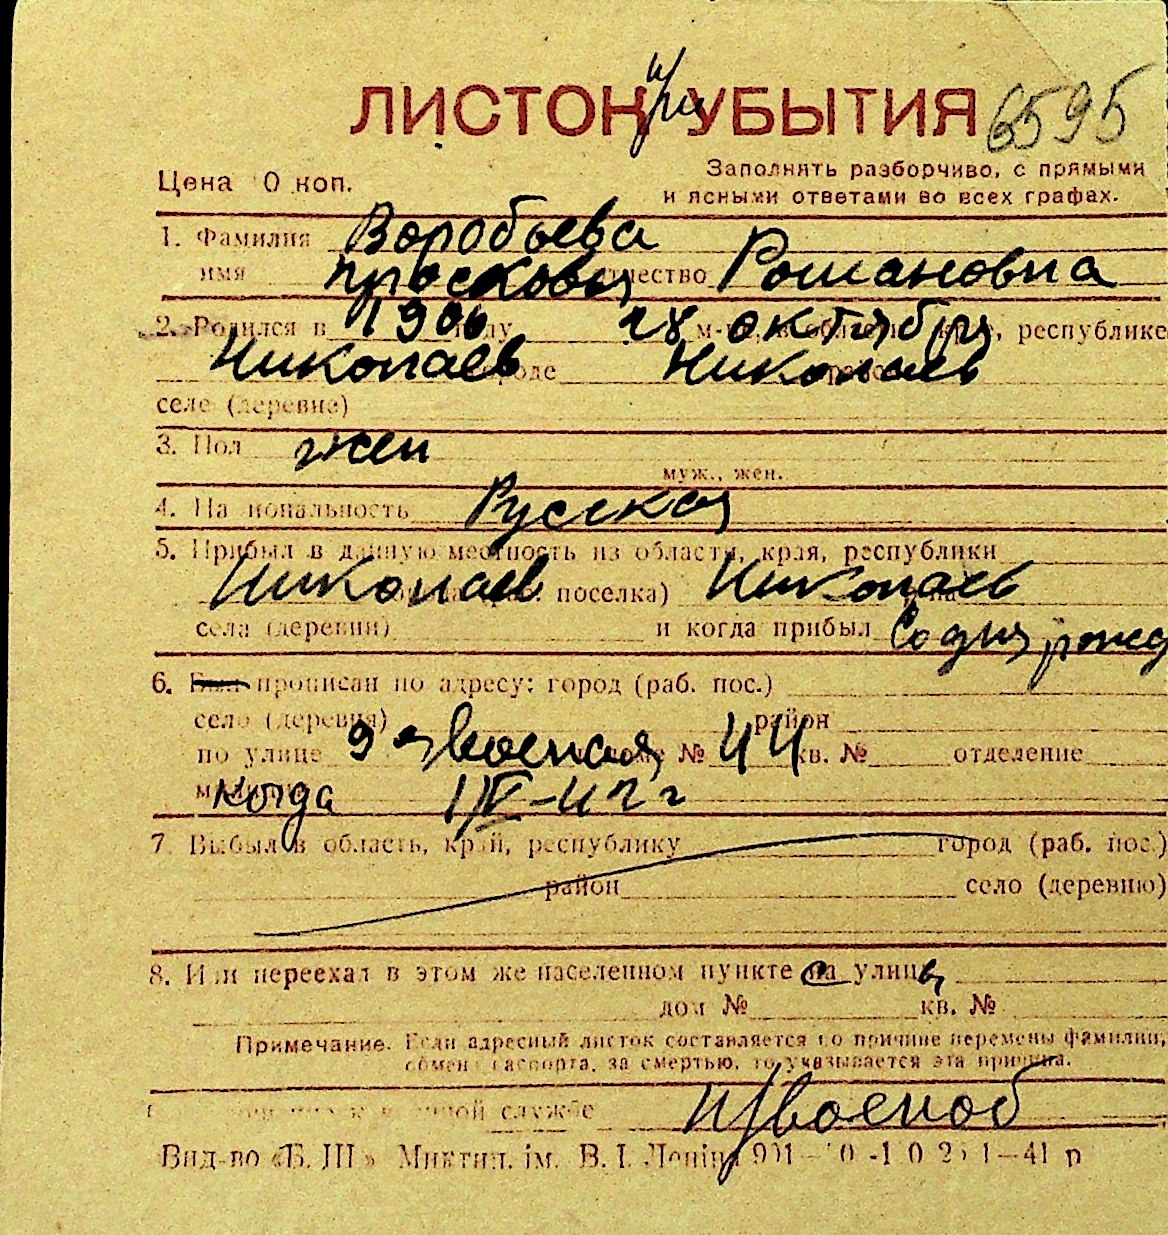 ЛИСТОК УБЫТИЯ 6595
при
Цена 10 коп.
Заполнять разборчиво, с прямыми
и ясными ответами во всех графах.
1. Фамилия Воробьева
имя Просковья отчество Романовна
2. Родился в 1906 году 28 октября м-це, в области, крае, республике
Николаев городе Николаев районе
селе (деревне)
3. Пол жен
муж., жен.
4. Национальность Русская
5. Прибыл в данную местность из области, края, республики
Николаев поселка) Николаев
села (деревни) и когда прибыл Со дня рожд
6. Был прописан по адресу: город (раб. пос.)
село (деревня) район
по улице 9 я Военная доме № 44 кв. № отделение
Когда 1/V-42 г
7. Выбыл в область, край, республику город (раб. пос.)
район село (деревню)
8. Или переехал в этом же населенном пункте на улицу
дом № кв. №
Примечание. Если адресный листок составляется по причине перемены фамилии,
обмена паспорта, за смертью, то указывается эта причина.
службе н/военоб
Вид-во «Б. Ш.» Миктип. ім. В. І. Леніна 41 р